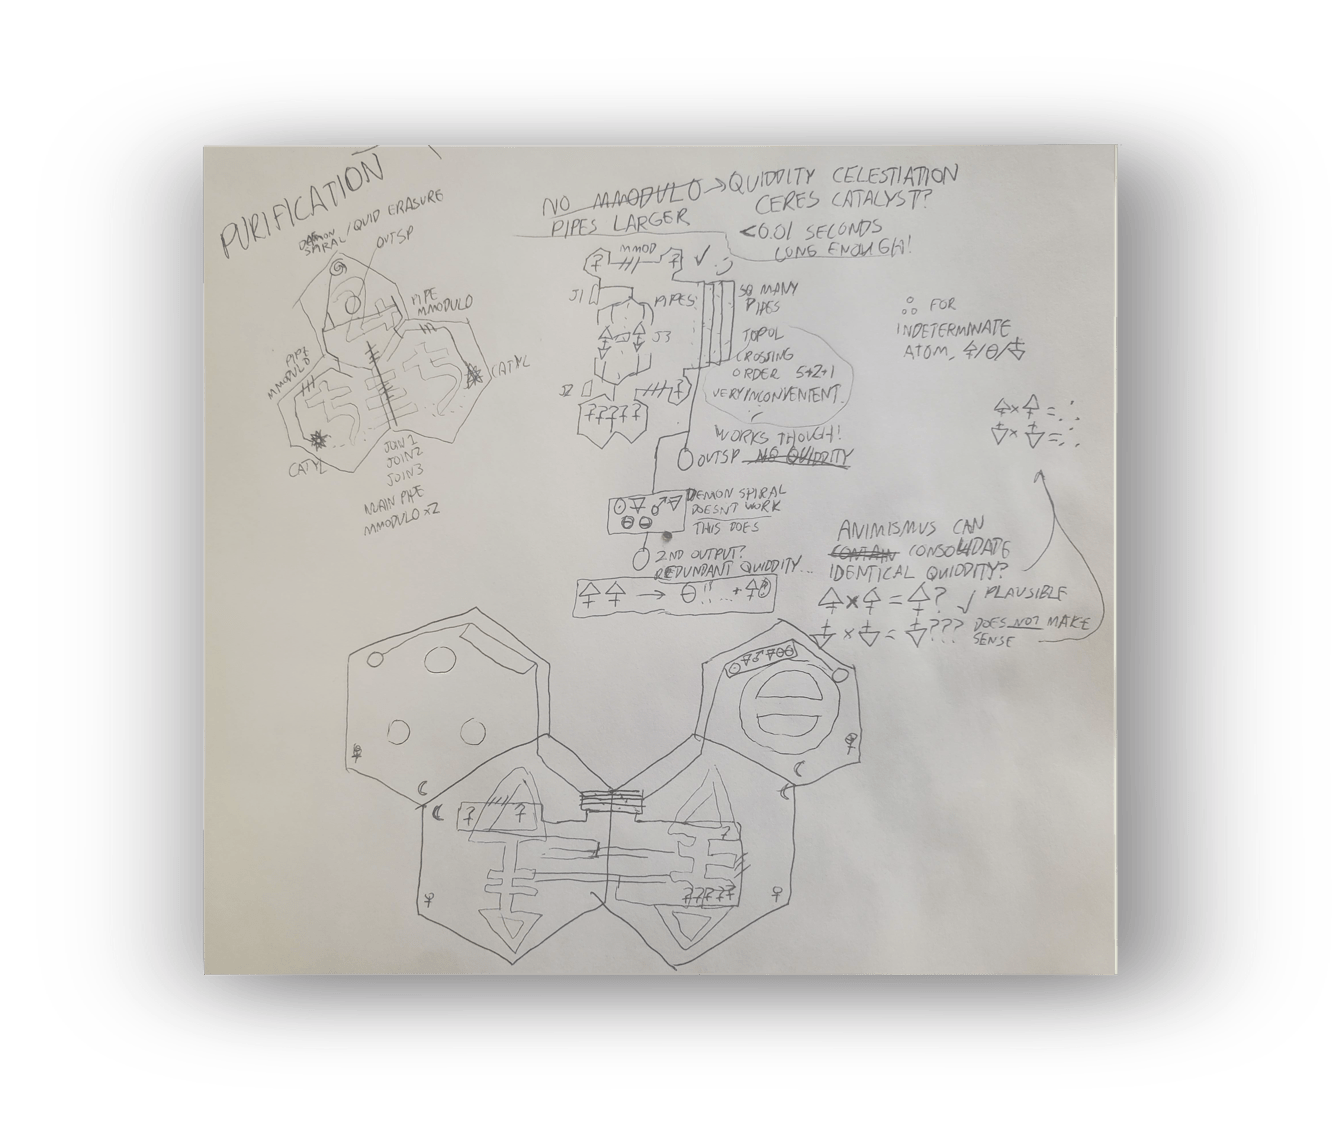 PURIFICATION
DEMON
SPIRAL /QUID ERASURE
OUTSP
PIPE
MMODULO
PIPE
MMODULO
CATYL
CATYL
JOIN1
JOIN2
JOIN3
MAIN PIPE
MMODULO x2
NO MMODULO → QUIDDITY CELESTIATION
CERES CATALYST?
PIPES LARGER
<0.01 SECONDS
LONG ENOUGH!
MMOD
J1
PIPES
J3
J2
SO MANY
PIPES
TOPOL
CROSSING
ORDER 5+2+1
VERY INCONVENIENT.
WORKS THOUGH!
OUTSP NO QUIDDITY
DEMON SPIRAL
DOESNT WORK
THIS DOES
2ND OUTPUT?
REDUNDANT QUIDDITY...
FOR
INDETERMINATE
ATOM,
ANIMISMUS CAN
CONTAIN CONSOLIDATE
IDENTICAL QUIDDITY?
PLAUSIBLE
??? DOES NOT MAKE
SENSE